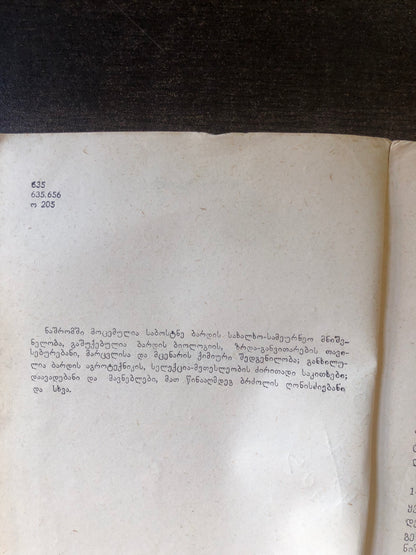 635
635.656
თ 205
ნაშრომში მოცემულია საბოსტნე ბარდის სახალხო-სამეურნეო მნიშვ-
ნელობა, გაშუქებულია ბარდის ბიოლოგიის, ზრდა-განვითარების თავი-
სებურებანი, მარცვლისა და მცენარის ქიმიური შედგენილობა; განხილუ-
ლია ბარდის აგროტექნიკის, სელექცია-მეთესლეობის ძირითადი საკითხები;
დაავადებანი და მავნებლები, მათ წინააღმდეგ ბრძოლის ღონისძიებანი
და სხვა.